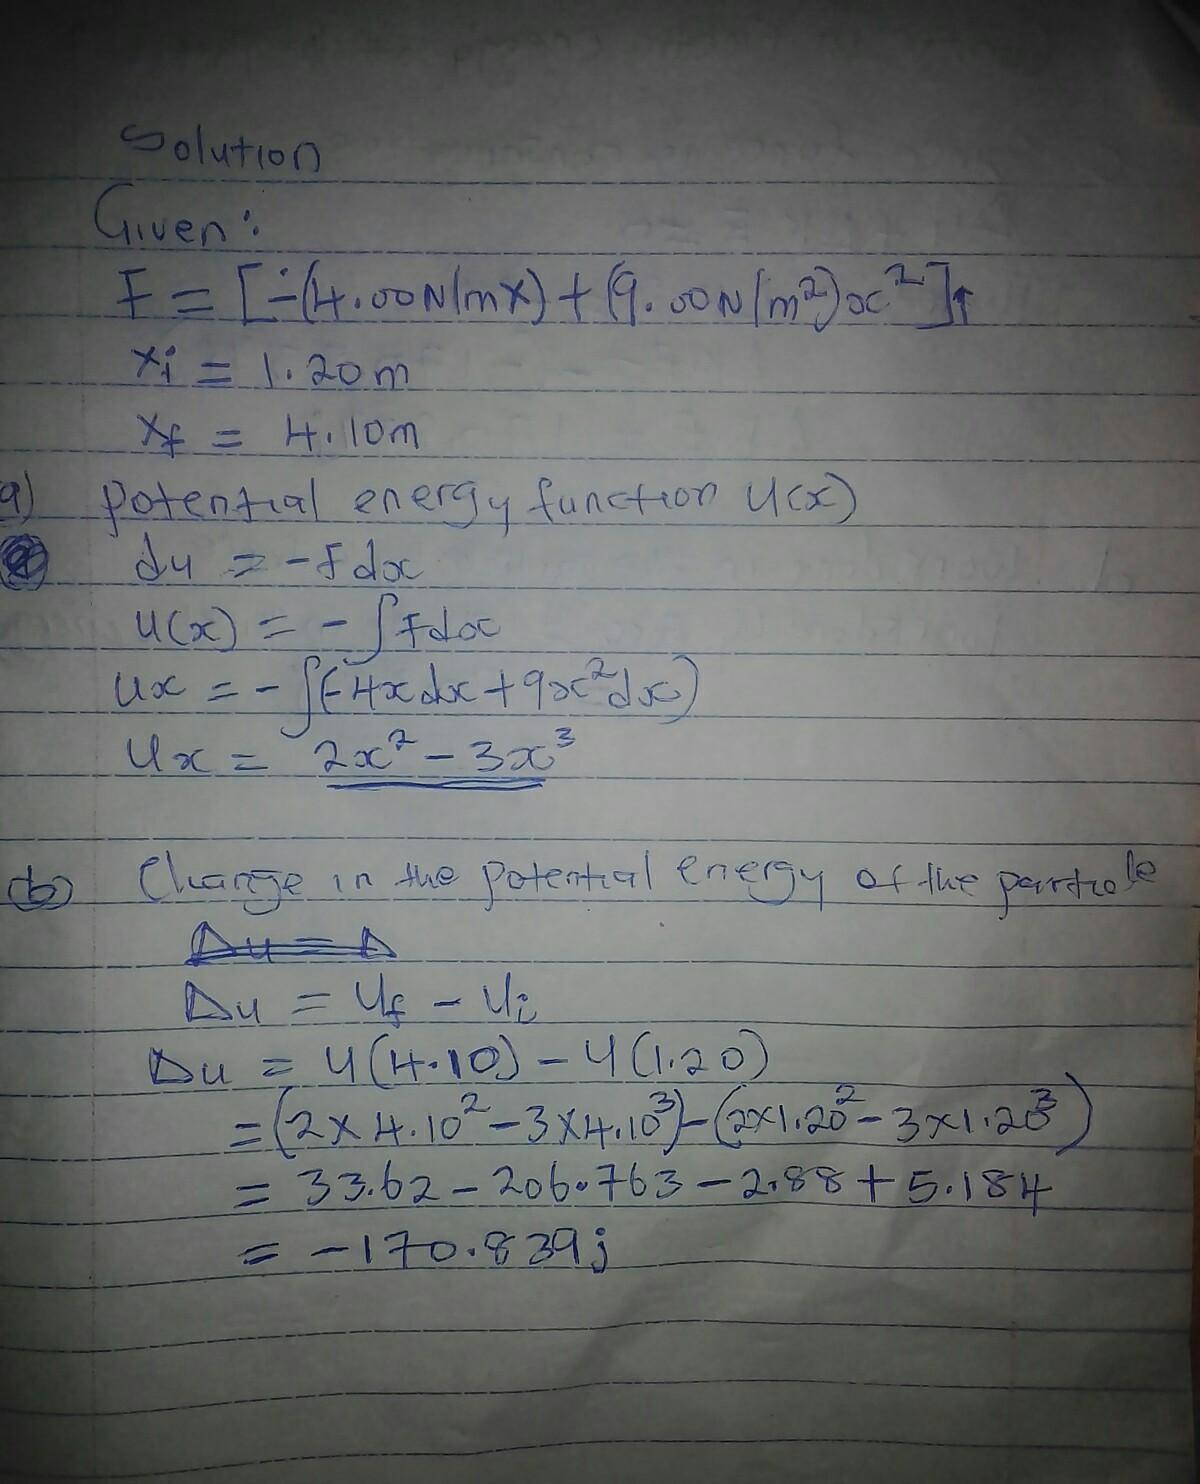 Solution
Given:
F = [-(4.00N/mx) + (9.00N/m²)x²]↑
xi = 1.20m
xf = 4.10m
a) Potential energy function U(x)
du = -Fdx
U(x) = -∫Fdx
Ux = -∫(-4xdx+9x²dx)
Ux = 2x² - 3x³
(b) Change in the potential energy of the particle
Δu = Δ
Δu = Uf - Ui
Δu = U(4.10) - U(1.20)
= (2×4.10² - 3×4.10³) - (2×1.20² - 3×1.20³)
= 33.62 - 206.763 - 2.88 + 5.184
= -170.839j